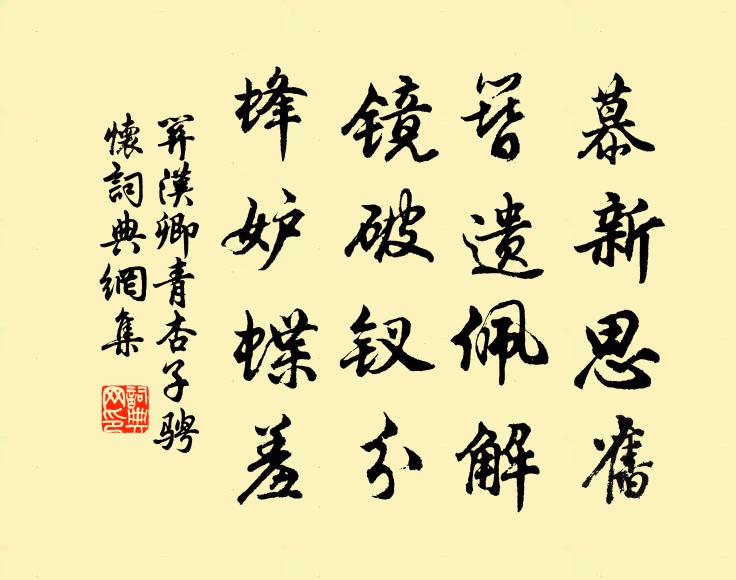 慕新思舊
簪遺佩解
鏡破釵分
蜂妒蝶羞
關漢卿青杏子騁
懷詞典網集
詞典
网印